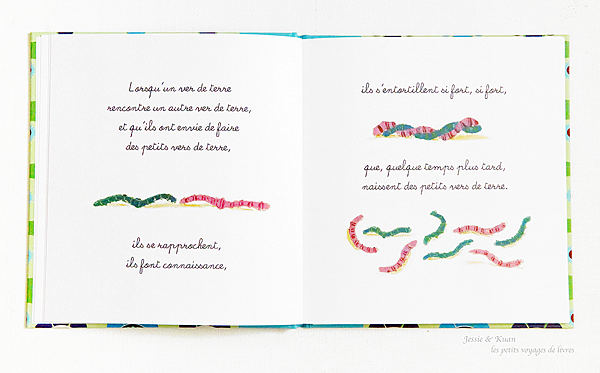 Lorsqu'un ver de terre
rencontre un autre ver de terre,
et qu'ils ont envie de faire
des petits vers de terre,
ils se rapprochent,
ils font connaissance,
ils s'entortillent si fort, si fort,
que, quelque temps plus tard,
naissent des petits vers de terre.
Jessie & Kuan
les petits voyages de livres